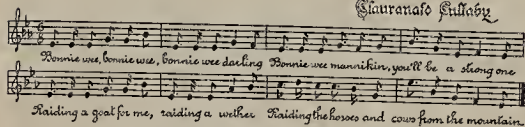 Clauranald Lullaby
Bonnie wee, bonnie wee, bonnie wee darling Bonnie wee mannikin, you'll be a strong one
Raiding a goat for me, raiding a wether Raiding the horses and cows from the mountain